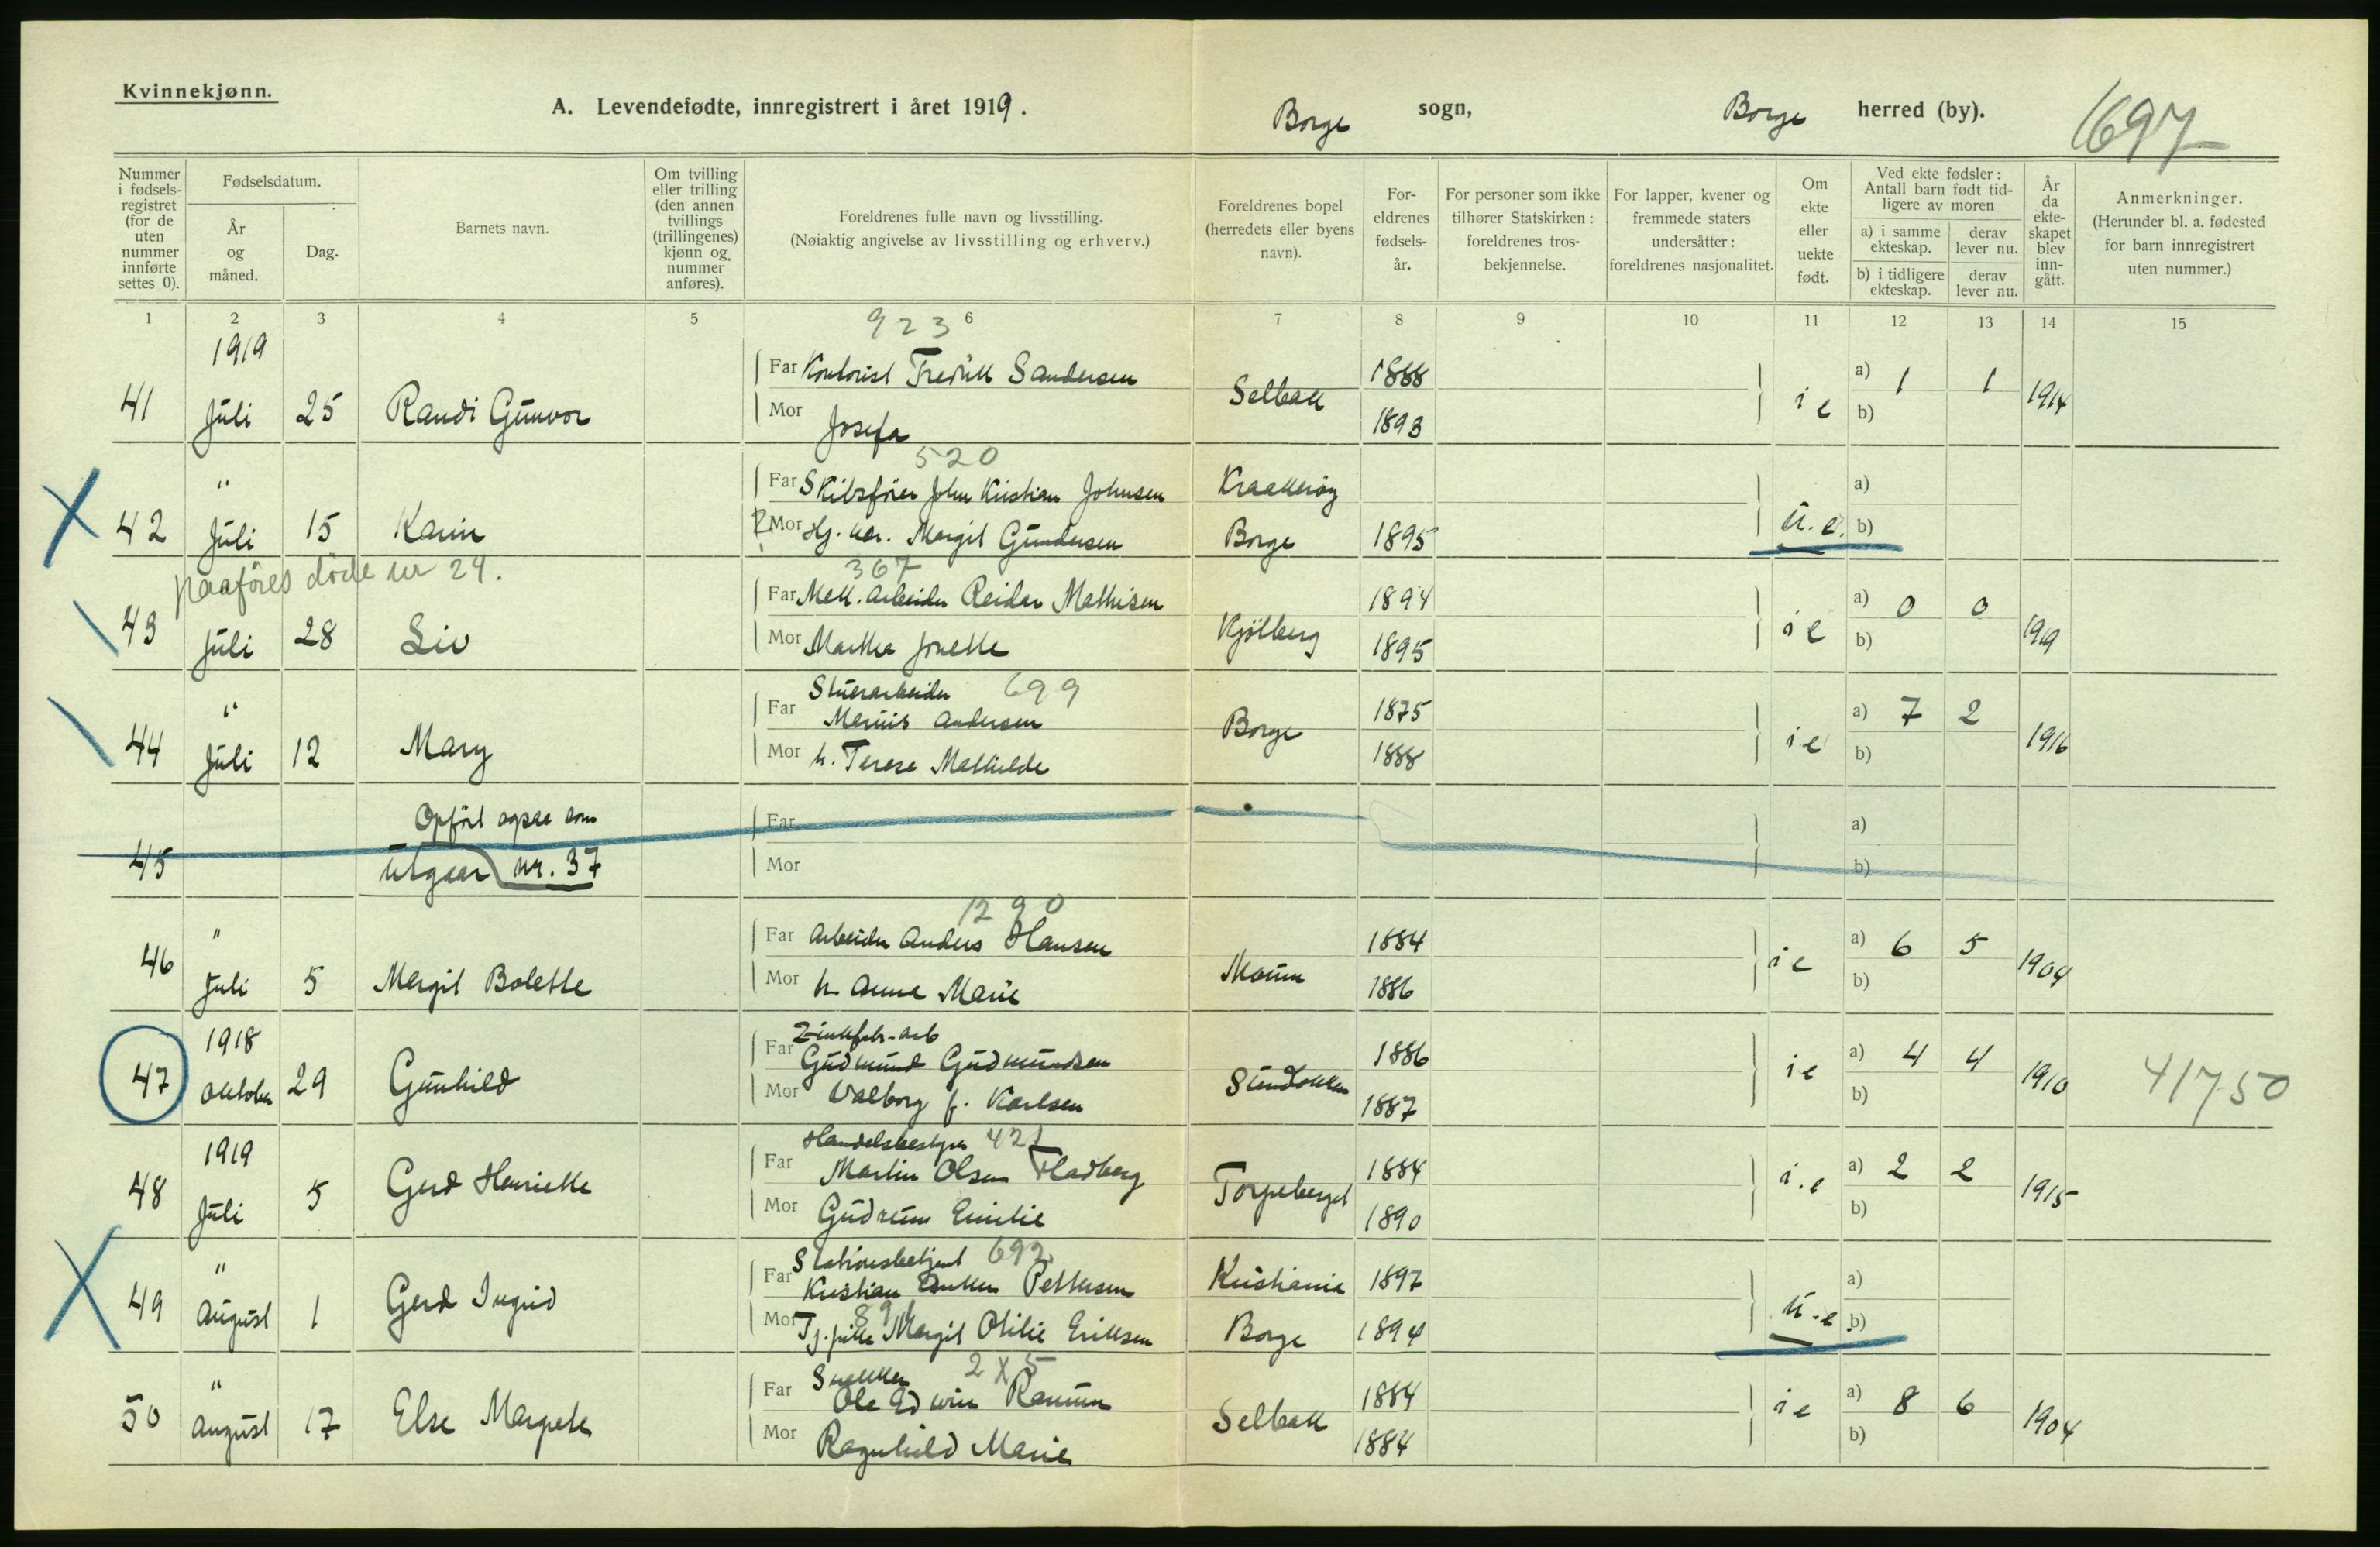 Kvinnekjønn.
A. Levendefødte, innregistrert i året 1919.
Borge sogn, Borge herred (by).
1697
Nummer i fødsels-registret (for de uten nummer innførte settes 0).
Fødselsdatum.
År og måned.
Dag.
Barnets navn.
Om tvilling eller trilling (den annen tvillings (trillingenes) kjønn og nummer anføres).
Foreldrenes fulle navn og livsstilling.
(Nøiaktig angivelse av livsstilling og erhverv.)
Foreldrenes bopel (herredets eller byens navn).
For-eldrenes fødsels-år.
For personer som ikke tilhører Statskirken: foreldrenes tros-bekjennelse.
For lapper, kvener og fremmede staters undersåtter: foreldrenes nasjonalitet.
Om ekte eller uekte født.
Ved ekte fødsler: Antall barn født tid-ligere av moren
a) i samme ekteskap.
derav lever nu.
b) i tidligere ekteskap.
derav lever nu.
År da ekte-skapet blev inn-gått.
Anmerkninger.
(Herunder bl. a. fødested for barn innregistrert uten nummer.)
1 2 3 4 5 6 7 8 9 10 11 12 13 14 15
923
1919
Far Kontorist Fredrik Sandersen 1888 a) 1 1
41 Juli 25 Randi Gunvor Selbak i e 1914
Mor Josefa 1893 b)
520
" Far Skibsfører John Kristian Johnsen Kraakerøy a)
X 42 Juli 15 Karin u.e.
Mor Hj. vær. Margit Gundersen Borge 1895 b)
paaføres døde nr 24.
367
Far Mek. arbeider Reidar Mathisen 1894 a) 0 0
43 Juli 28 Liv Kjølberg i e 1919
Mor Martha Jonette 1895 b)
Stuerarbeider 699
" Far Marius Andersen 1875 a) 7 2
44 Juli 12 Mary Borge i e 1916
Mor h. Terese Mathilde 1888 b)
Opført ogsaa som Far a)
45 utgaar nr. 37 Mor b)
1290
" Far Arbeider Anders Hansen 1884 a) 6 5
46 Juli 5 Margit Bolette Moum i e 1904
Mor h. Anna Marie 1886 b)
1918 Zinkfabr-arb
Far Gudmund Gudmundsen 1886 a) 4 4
47 Oktober 29 Gunhild Sundløkken i e 1910 41750
Mor Valborg f. Karlsen 1887 b)
1919 Handelsbestyrer 421
Far Martin Olsen Hadberg 1884 a) 2 2
48 Juli 5 Gerd Henriette Torpeberget i.e 1915
Mor Gudrun Emilie 1890 b)
Stationsbetjent 692
" Far Kristian Pettersen Kristiania 1897 a)
X 49 August 1 Gerd Ingrid u.e
Mor Tj.pike Margit Otilie Eriksen Borge 1894 b)
Snekker 2x5
" Far Ole Edwin Ramum 1884 a) 8 6
50 August 17 Else Margrete Selbak i e 1904
Mor Ragnhild Marie 1884 b)